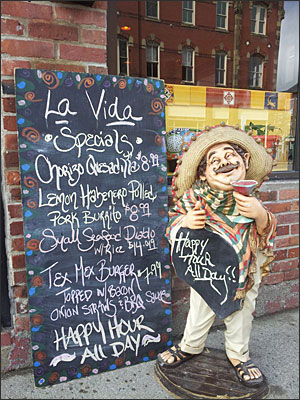 La Vida
Specials
Chorizo Quesadilla $8.99
Lemon Habenero Pulled
Pork Burrito $8.99
Small Seafood Diablo
w/ Rice $14.99
Tex Mex Burger $7.99
Topped w/ Bacon
Onion Straws & BBQ Sauce
Happy Hour
All Day
Happy
Hour
All Day!!